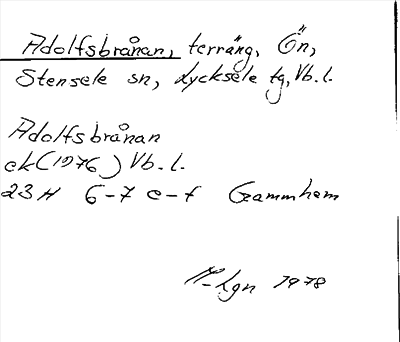 Adolfsbrånan, terräng, Ön,
Stensele sn, Lycksele tg, Vb. l.
Adolfsbrånan
ek (1976) Vb. l.
23H 6-7 e-f Gammhem
1978